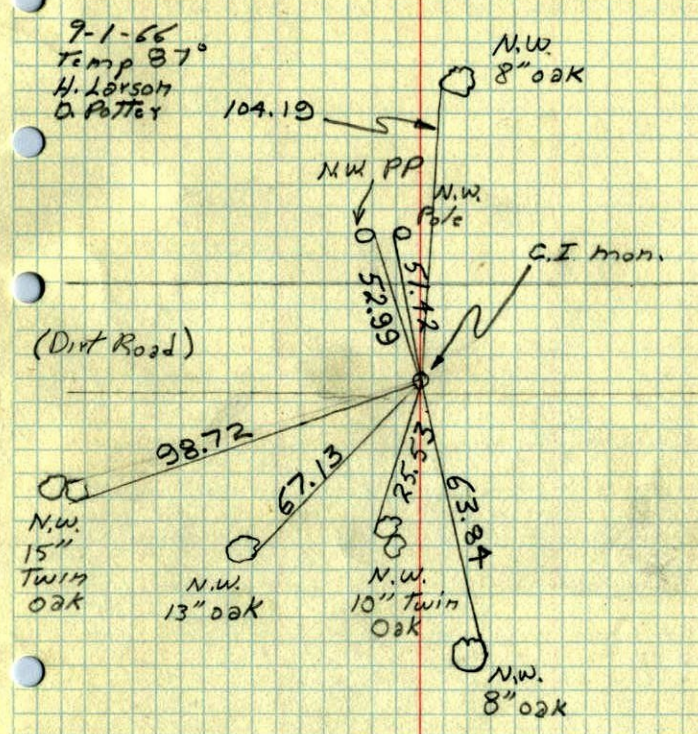 9-1-66
Temp 87°
H. Larson
D. Potter
N.W.
8" oak
104.19
N.W. PP
N.W.
Pole
C.I. mon.
52.99
51.42
(Dirt Road)
98.72
67.13
25.53
63.84
N.W.
15"
Twin
oak
N.W.
13" oak
N.W.
10" Twin
Oak
N.W.
8" oak